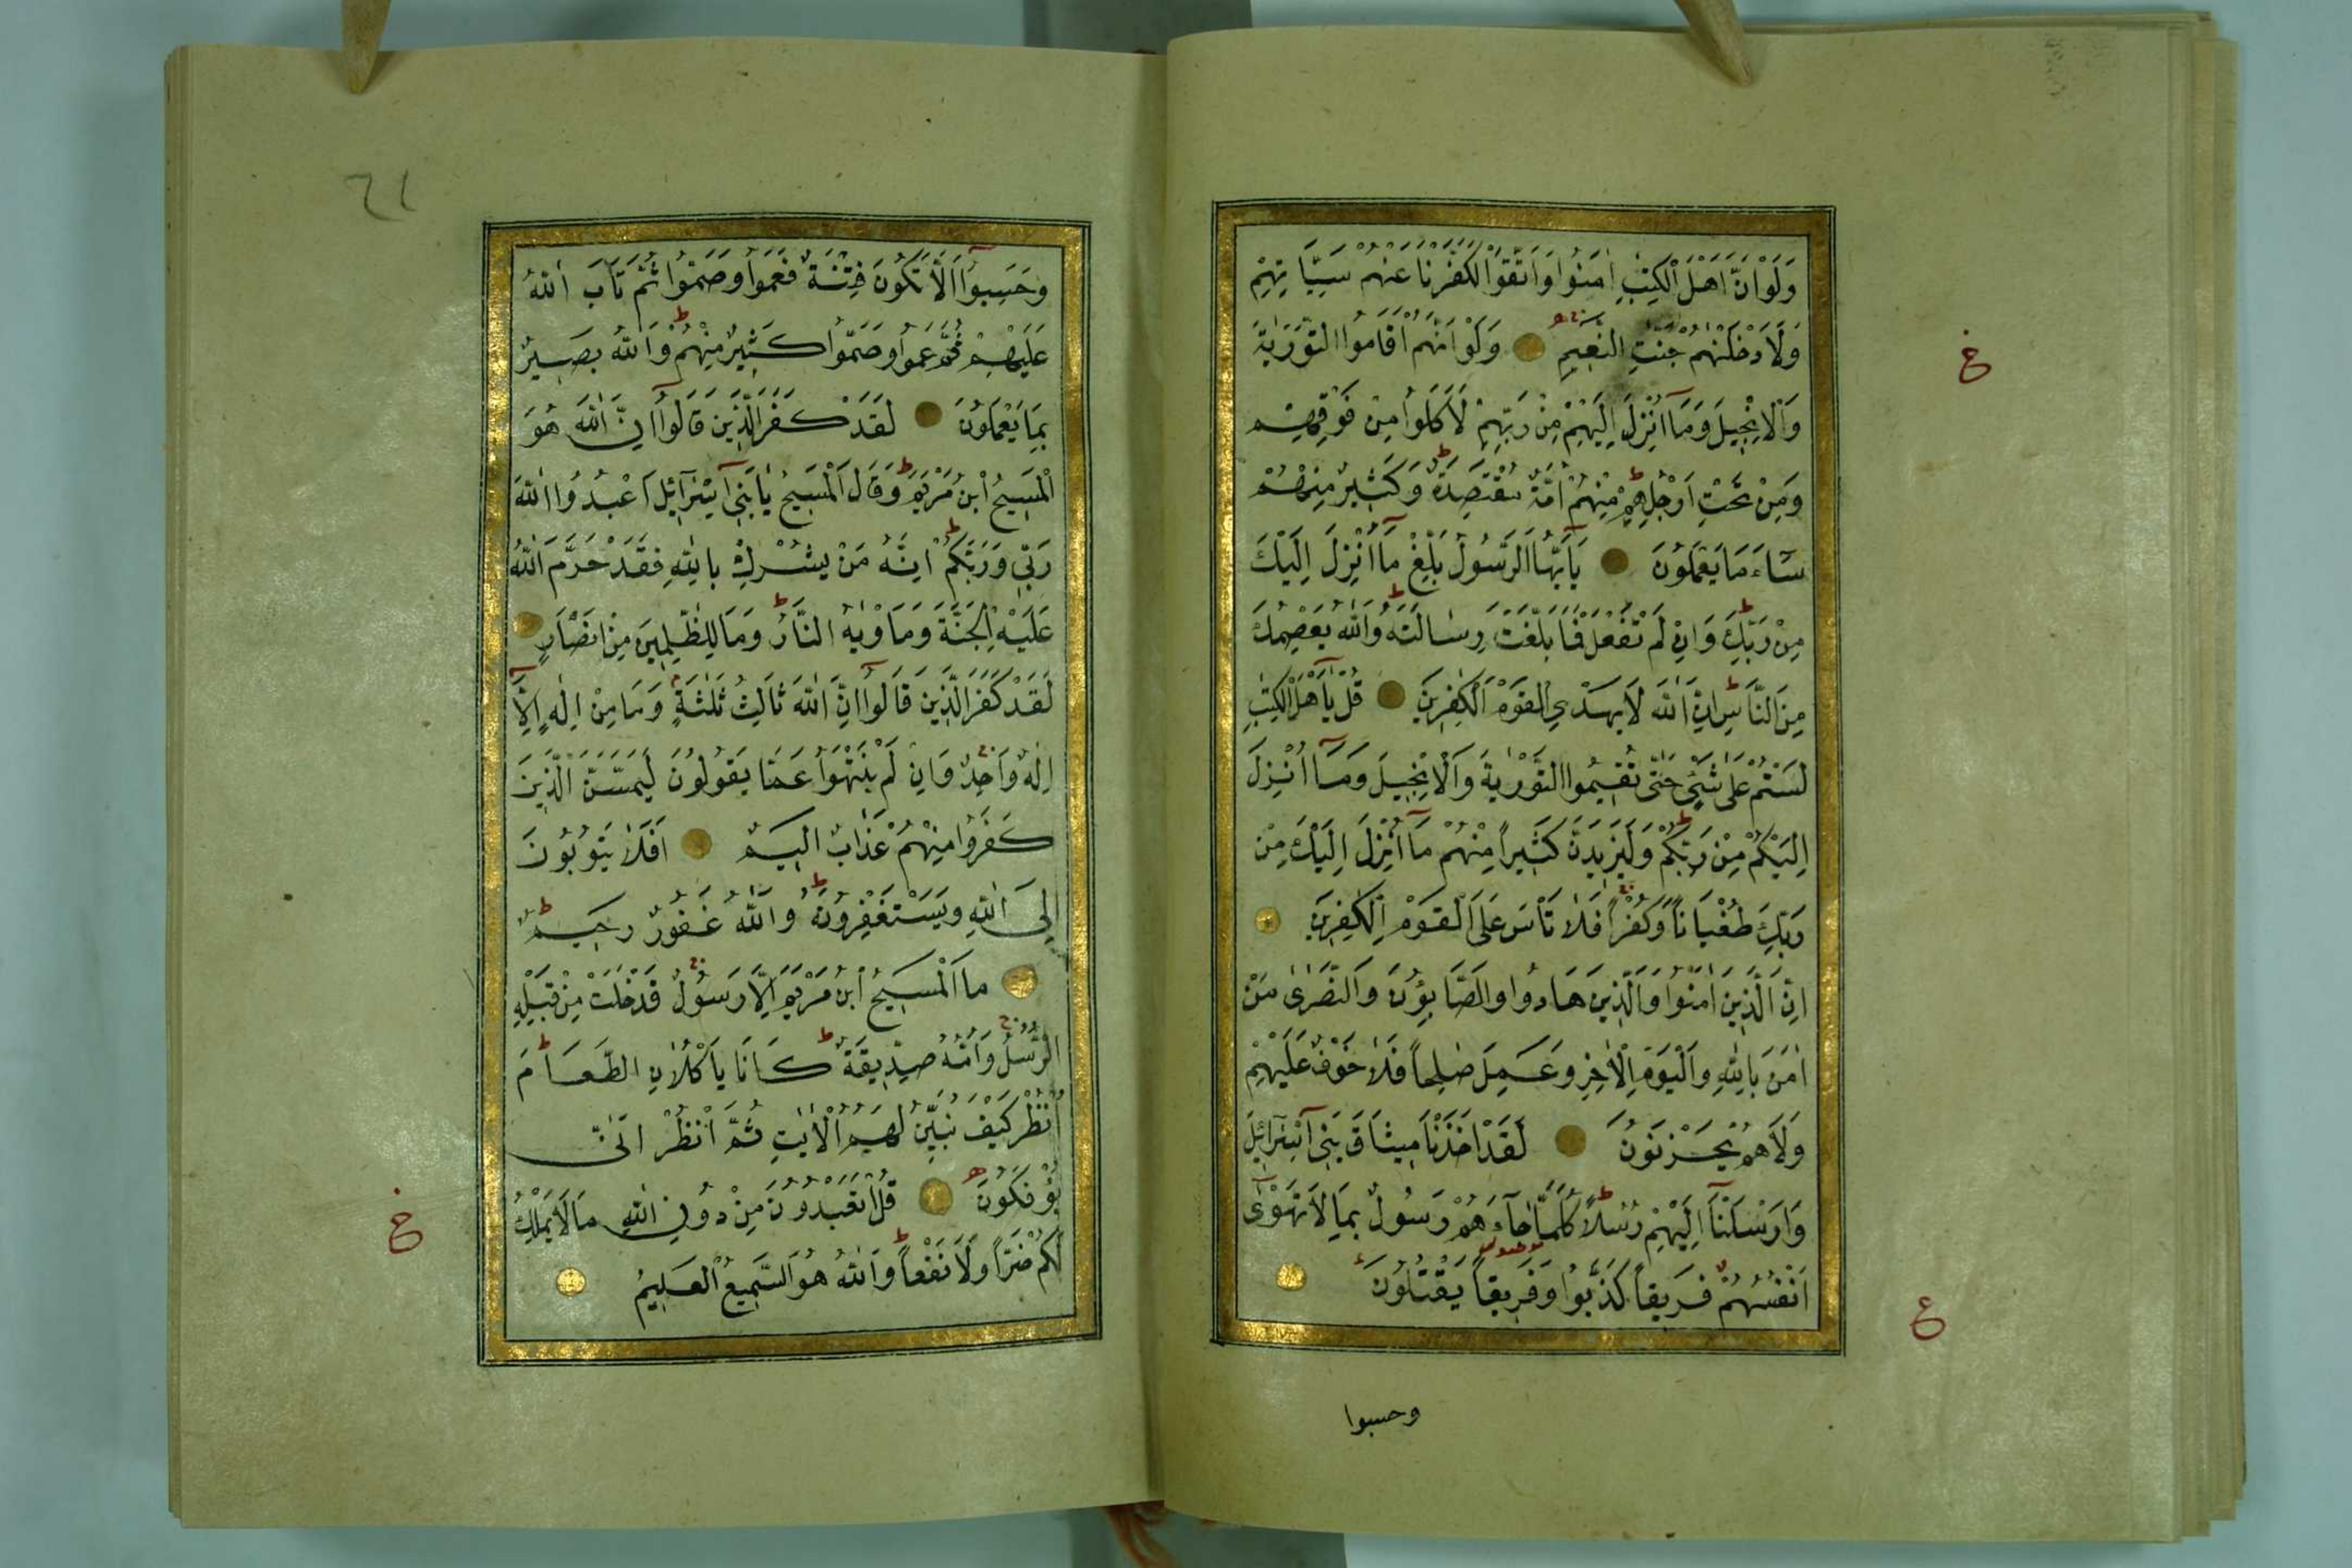 وَلَوْ اَنَّ اَهْلَ الْكِتٰبِ اٰمَنُوا وَاتَّقَوْا لَكَفَّرْنَا عَنْهُمْ سَيِّـَٔاتِهِمْ
وَلَاَدْخَلْنٰهُمْ جَنّٰتِ النَّعِيمِ وَلَوْ اَنَّهُمْ اَقَامُوا التَّوْرٰيةَ
وَالْاِنْجِيلَ وَمَآ اُنْزِلَ اِلَيْهِمْ مِنْ رَبِّهِمْ لَاَكَلُوا مِنْ فَوْقِهِمْ
وَمِنْ تَحْتِ اَرْجُلِهِمْ مِنْهُمْ اُمَّةٌ مُقْتَصِدَةٌ وَكَثِيرٌ مِنْهُمْ
سَآءَ مَا يَعْمَلُونَ يَآ اَيُّهَا الرَّسُولُ بَلِّغْ مَآ اُنْزِلَ اِلَيْكَ
مِنْ رَبِّكَ وَاِنْ لَمْ تَفْعَلْ فَمَا بَلَّغْتَ رِسَالَتَهُ وَاللّٰهُ يَعْصِمُكَ
مِنَ النَّاسِ اِنَّ اللّٰهَ لَا يَهْدِي الْقَوْمَ الْكٰفِرِينَ قُلْ يَآ اَهْلَ الْكِتٰبِ
لَسْتُمْ عَلٰى شَيْءٍ حَتّٰى تُقِيمُوا التَّوْرٰيةَ وَالْاِنْجِيلَ وَمَآ اُنْزِلَ
اِلَيْكُمْ مِنْ رَبِّكُمْ وَلَيَزِيدَنَّ كَثِيراً مِنْهُمْ مَآ اُنْزِلَ اِلَيْكَ مِنْ
رَبِّكَ طُغْيَاناً وَكُفْراً فَلَا تَأْسَ عَلَى الْقَوْمِ الْكٰفِرِينَ
اِنَّ الَّذِينَ اٰمَنُوا وَالَّذِينَ هَادُوا وَالصَّابِؤُنَ وَالنَّصَارٰى مَنْ
اٰمَنَ بِاللّٰهِ وَالْيَوْمِ الْاٰخِرِ وَعَمِلَ صَالِحاً فَلَا خَوْفٌ عَلَيْهِمْ
وَلَا هُمْ يَحْزَنُونَ لَقَدْ اَخَذْنَا مِيثَاقَ بَنِيٓ اِسْرَآئِلَ
وَاَرْسَلْنَآ اِلَيْهِمْ رُسُلاً كُلَّمَا جَآءَهُمْ رَسُولٌ بِمَا لَا تَهْوٰىٓ
اَنْفُسُهُمْ فَرِيقاً كَذَّبُوا وَفَرِيقاً يَقْتُلُونَ
وحسبوا
خ
ع
٦١
وَحَسِبُوٓا اَلَّا تَكُونَ فِتْنَةٌ فَعَمُوا وَصَمُّوا ثُمَّ تَابَ اللّٰهُ
عَلَيْهِمْ ثُمَّ عَمُوا وَصَمُّوا كَثِيرٌ مِنْهُمْ وَاللّٰهُ بَصِيرٌ
بِمَا يَعْمَلُونَ لَقَدْ كَفَرَ الَّذِينَ قَالُوٓا اِنَّ اللّٰهَ هُوَ
الْمَسِيحُ ابْنُ مَرْيَمَ وَقَالَ الْمَسِيحُ يَابَنِيٓ اِسْرَآئِلَ اعْبُدُوا اللّٰهَ
رَبِّي وَرَبَّكُمْ اِنَّهُ مَنْ يُشْرِكْ بِاللّٰهِ فَقَدْ حَرَّمَ اللّٰهُ
عَلَيْهِ الْجَنَّةَ وَمَأْوٰيهُ النَّارُ وَمَا لِلظّٰلِمِينَ مِنْ اَنْصَارٍ
لَقَدْ كَفَرَ الَّذِينَ قَالُوٓا اِنَّ اللّٰهَ ثَالِثُ ثَلٰثَةٍ وَمَا مِنْ اِلٰهٍ اِلَّآ
اِلٰهٌ وَاحِدٌ وَاِنْ لَمْ يَنْتَهُوا عَمَّا يَقُولُونَ لَيَمَسَّنَّ الَّذِينَ
كَفَرُوا مِنْهُمْ عَذَابٌ اَلِيمٌ اَفَلَا يَتُوبُونَ
اِلَى اللّٰهِ وَيَسْتَغْفِرُونَهُ وَاللّٰهُ غَفُورٌ رَحِيمٌ
مَا الْمَسِيحُ ابْنُ مَرْيَمَ اِلَّا رَسُولٌ قَدْ خَلَتْ مِنْ قَبْلِهِ
الرُّسُلُ وَاُمُّهُ صِدِّيقَةٌ كَانَا يَأْكُلَانِ الطَّعَامَ
اُنْظُرْ كَيْفَ نُبَيِّنُ لَهُمُ الْاٰيَاتِ ثُمَّ انْظُرْ اَنّٰى
يُؤْفَكُونَ قُلْ اَتَعْبُدُونَ مِنْ دُونِ اللّٰهِ مَا لَا يَمْلِكُ
لَكُمْ ضَرًّا وَلَا نَفْعاً وَاللّٰهُ هُوَ السَّمِيعُ الْعَلِيمُ
خ